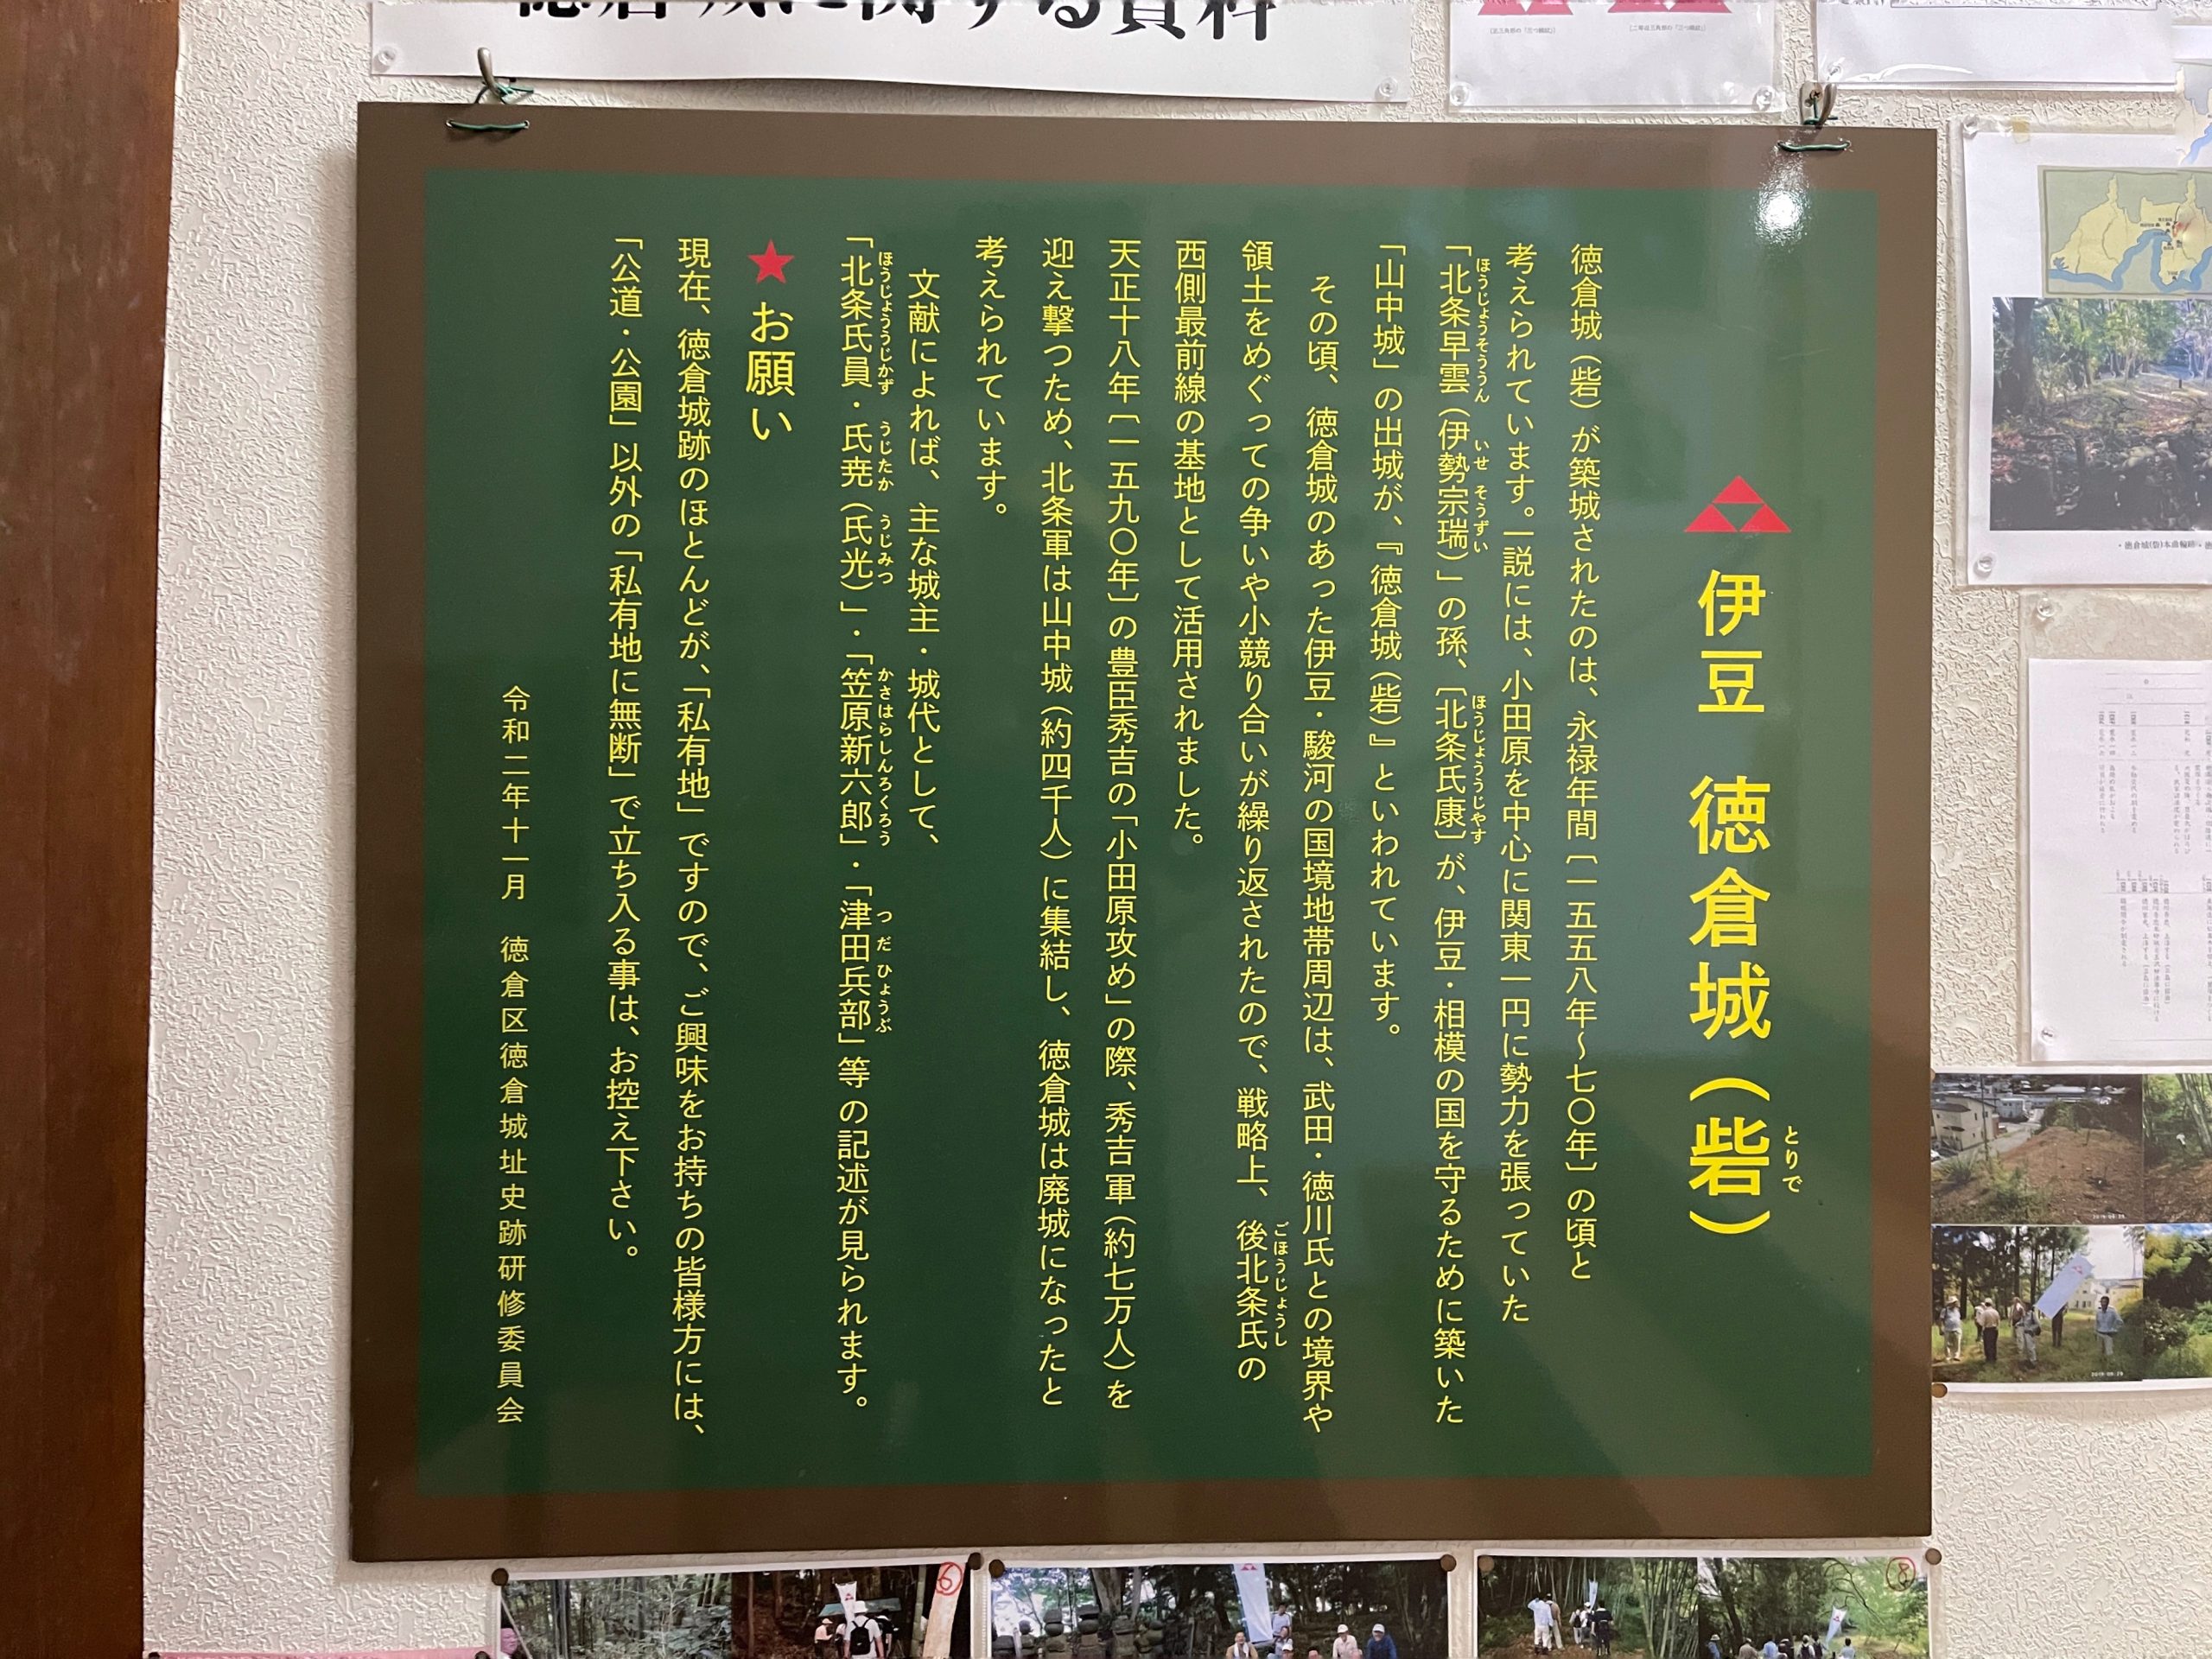 伊豆 徳倉城（砦）
とりで
徳倉城（砦）が築城されたのは、永禄年間〔一五五八年～七〇年〕の頃と
考えられています。一説には、小田原を中心に関東一円に勢力を張っていた
「北条早雲（伊勢宗瑞）」の孫、〔北条氏康〕が、伊豆・相模の国を守るために築いた
ほうじょうそううん いせ そうずい ほうじょううじやす
「山中城」の出城が、『徳倉城（砦）』といわれています。
その頃、徳倉城のあった伊豆・駿河の国境地帯周辺は、武田・徳川氏との境界や
領土をめぐっての争いや小競り合いが繰り返されたので、戦略上、後北条氏の
ごほうじょうし
西側最前線の基地として活用されました。
天正十八年〔一五九〇年〕の豊臣秀吉の「小田原攻め」の際、秀吉軍（約七万人）を
迎え撃つため、北条軍は山中城（約四千人）に集結し、徳倉城は廃城になったと
考えられています。
文献によれば、主な城主・城代として、
「北条氏員・氏尭（氏光）」・「笠原新六郎」・「津田兵部」等の記述が見られます。
ほうじょううじかず うじたか うじみつ かさはらしんろくろう つだ ひょうぶ
★お願い
現在、徳倉城跡のほとんどが、「私有地」ですので、ご興味をお持ちの皆様方には、
「公道・公園」以外の「私有地に無断」で立ち入る事は、お控え下さい。
令和二年十一月 徳倉区徳倉城址史跡研修委員会